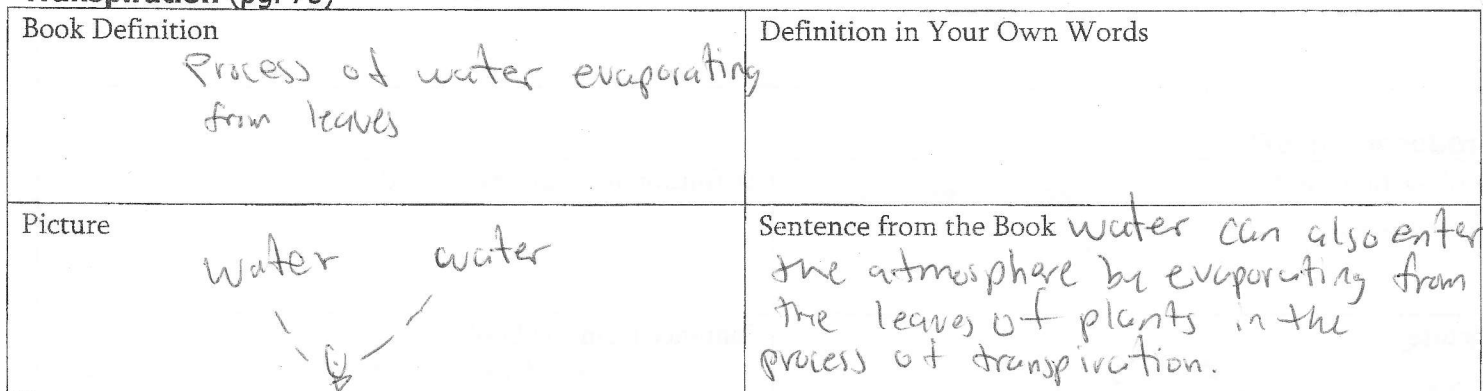 Transpiration (pg. 
Book Definition
Process of water evaporating
from leaves
Definition in Your Own Words
Picture
water water
Sentence from the Book water can also enter
the atmosphere by evaporating from
the leaves of plants in the
process of transpiration.